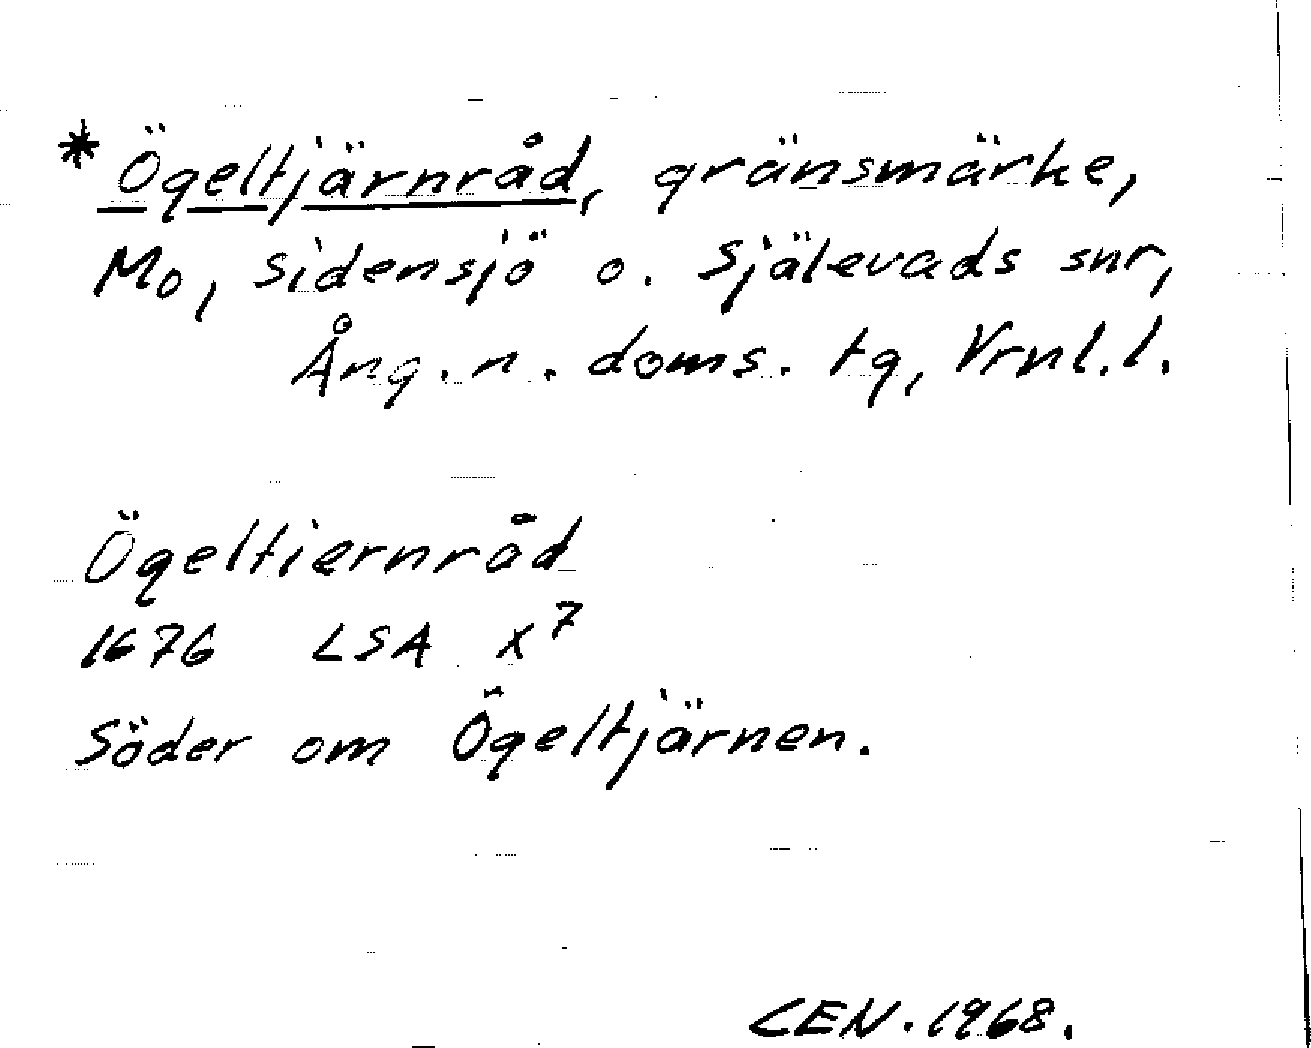 * Ögeltjärnråd, gränsmärke,
Mo, Sidensjö o. Själevads snr,
Ång. n. doms. tg, Vrnl. l.
Ögeltiernråd
1676 LSA X7
Söder om Ögeltjärnen.
CEN. 1968.